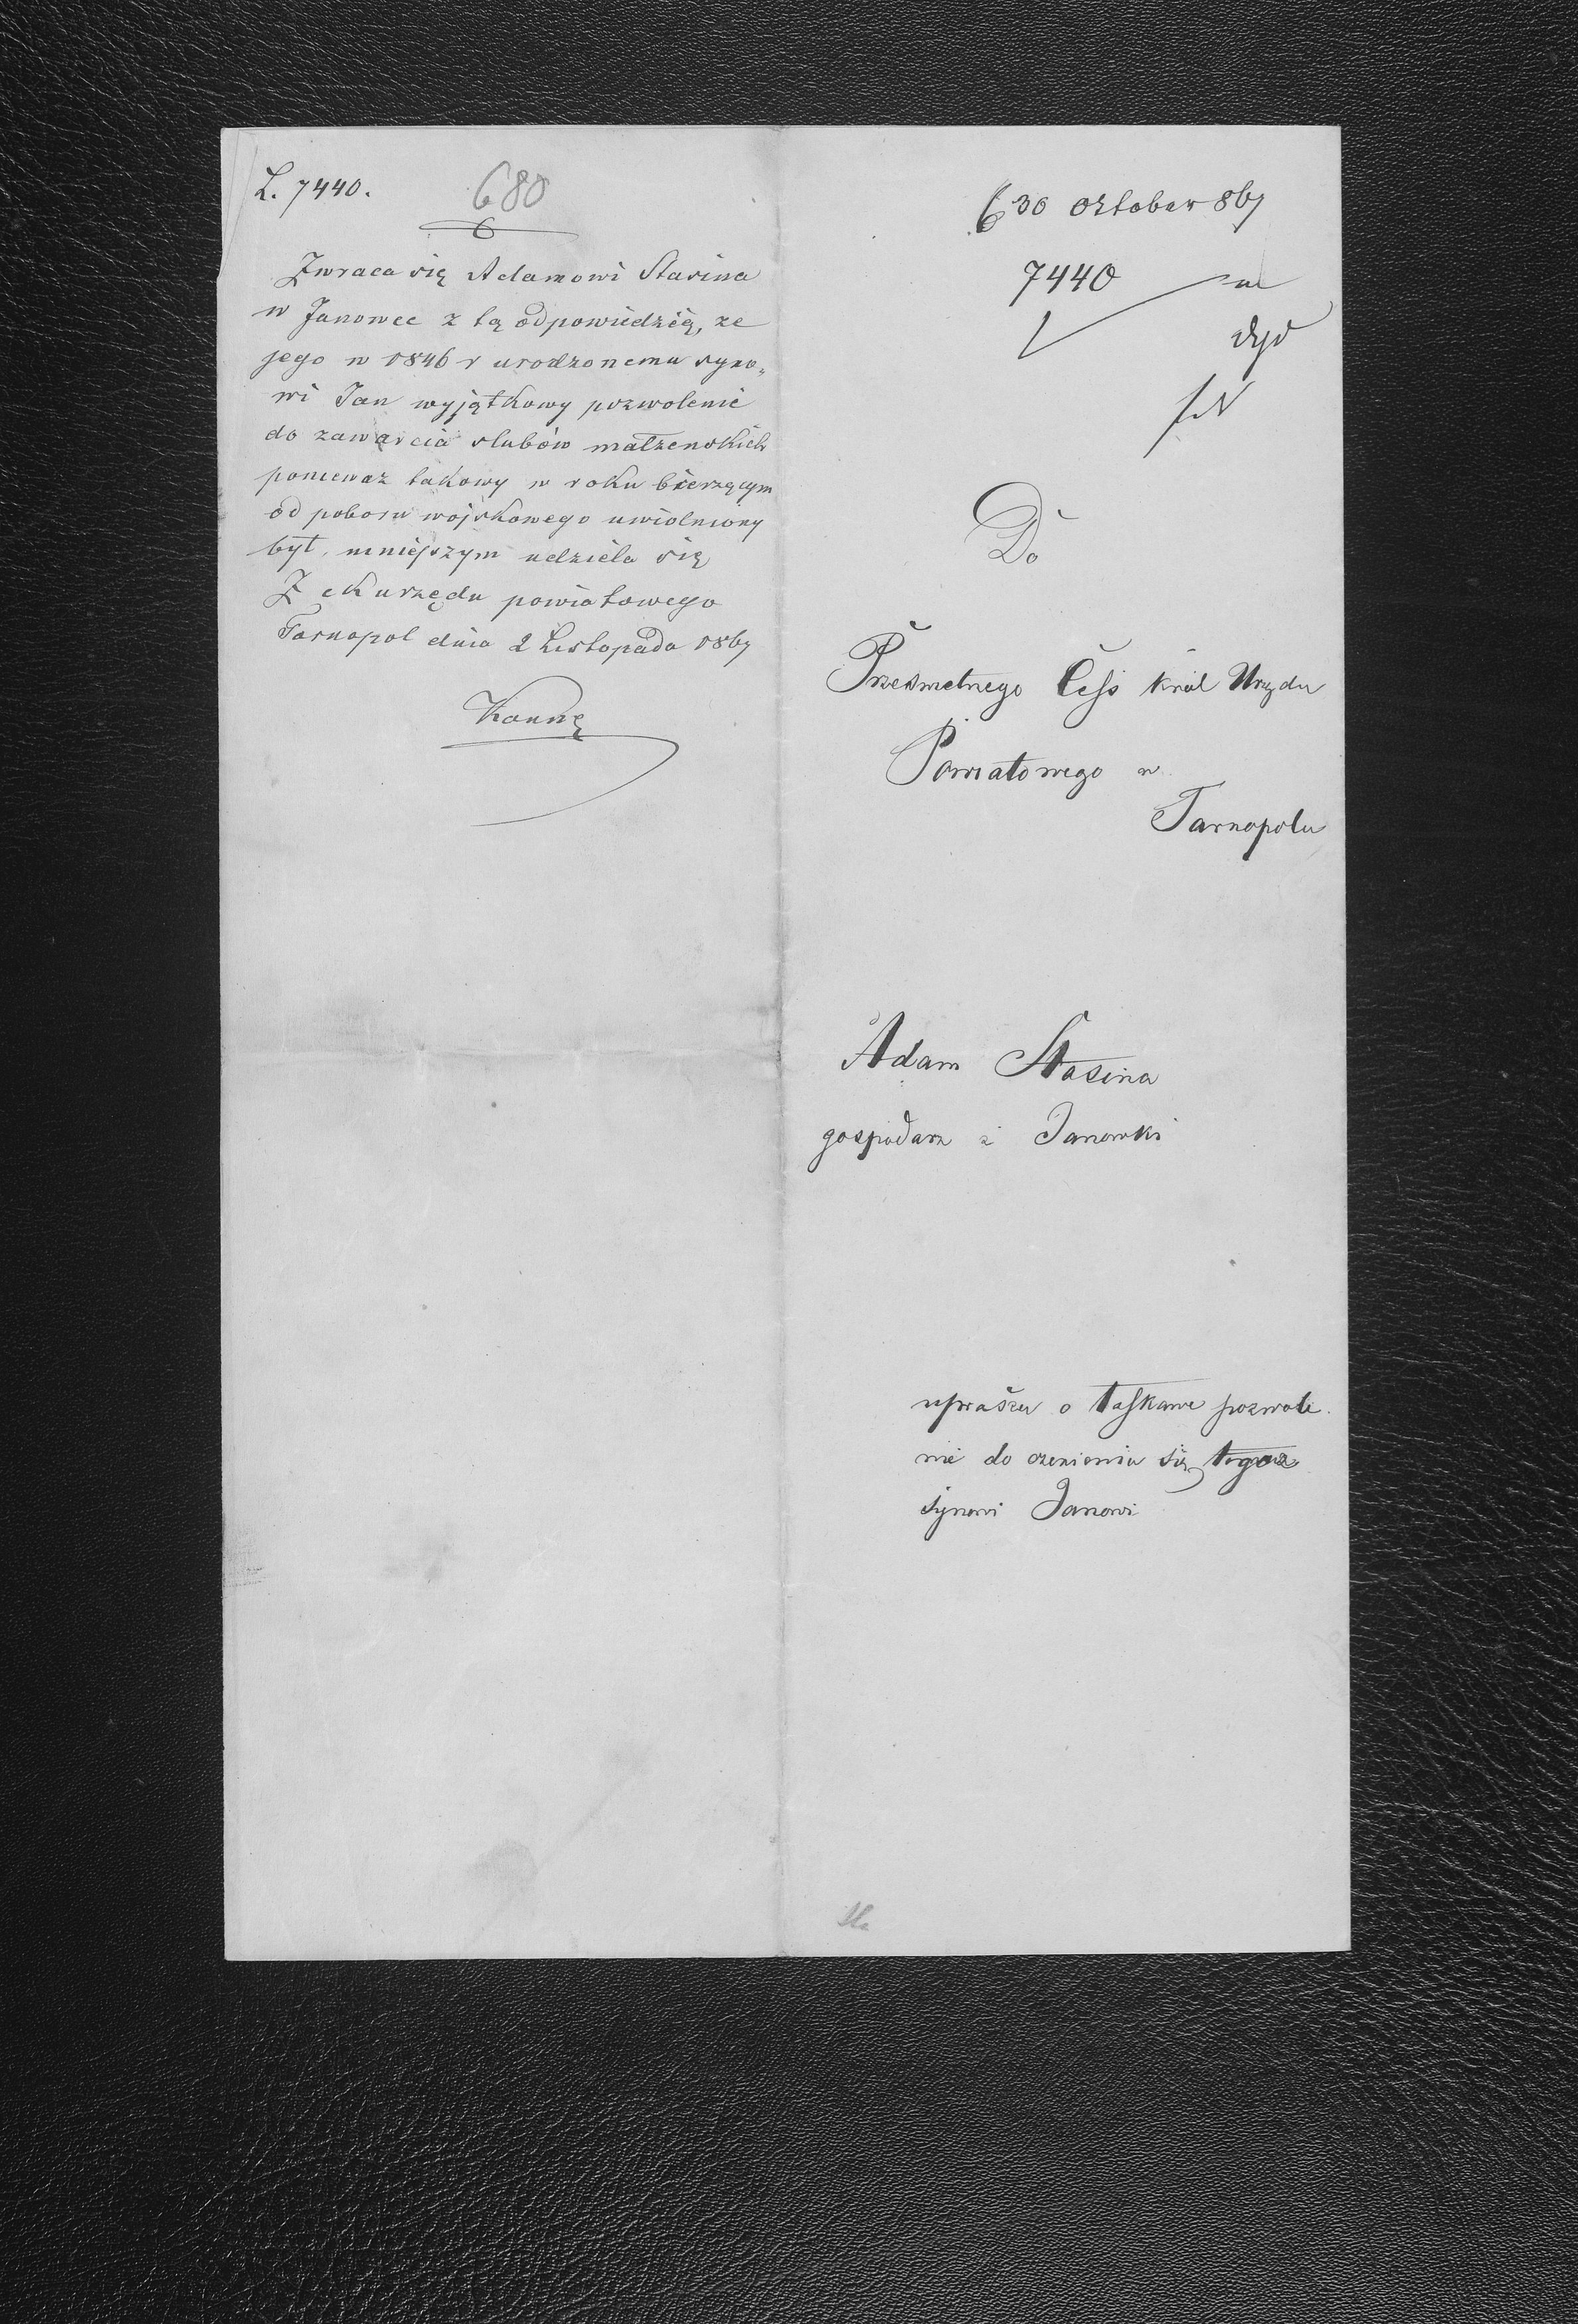 L. 7440.
680
Zwraca się Adamowi Stasina
w Janowce z tą odpowiedzią, ze
jego w 1846 r urodzonemu syno„
wi Jan wyjątkowy pozwolenie
do zawarcia slubów małzenskich
poniewaz takowy w roku bierzącym
od poboru wojskowego uwiolniony
był, niniejszym udziela się
Z ck urzędu powiatowego
Tarnopol dnia 2 Listopada 1867
30 October 867
7440
Do
Prześwietnego Ces król Urzędu
Powiatowego w
Tarnopolu
Adam Stasina
gospodarz z Janowki
uprasza o łaskawe pozwole
nie do ozenienia się tegoz
synowi Janowi